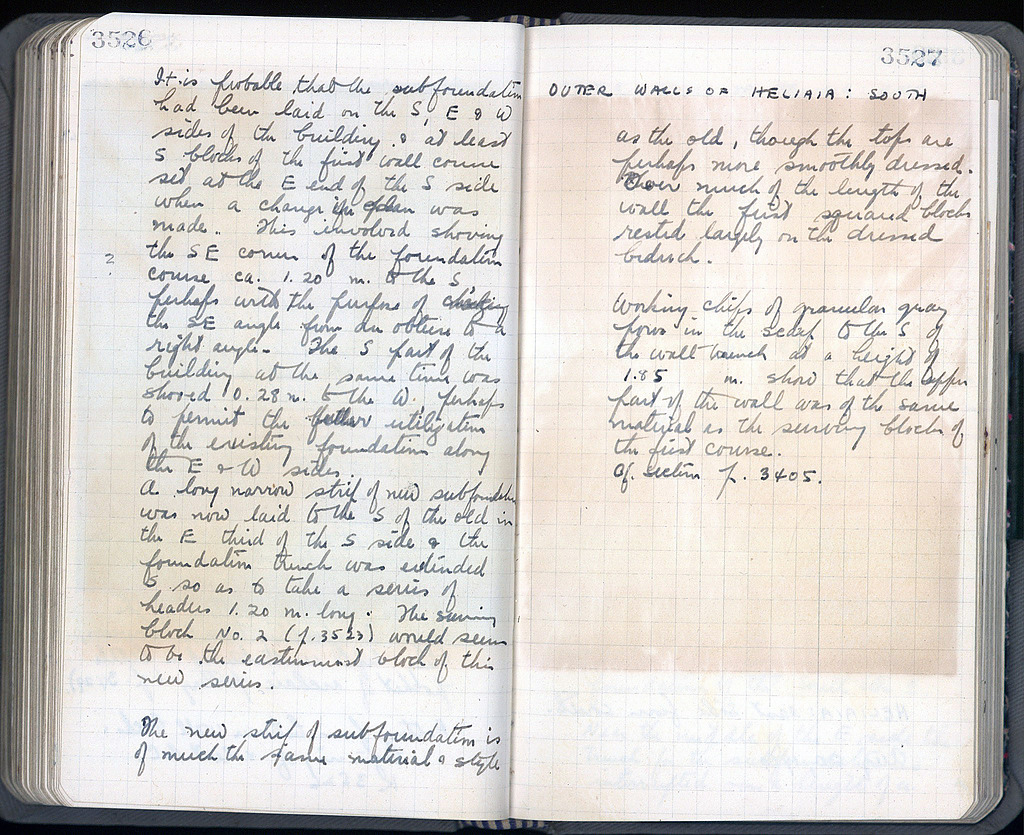 3526
It is probable that the subfoundation
had been laid on the S, E & W
sides of the building & at least
5 blocks of the first wall course
set at the E end of the S side
when a change in plan was
made. This involved shoving
the SE corner of the foundation
?
course ca. 1.20 m. to the S
perhaps with the purpose of
the SE angle from an obtuse to a
right angle. The S part of the
building at the same time was
shoved 0.28 m. to the W. perhaps
to permit the fuller utilization
of the existing foundations along
the E & W sides.
A long narrow strip of new subfoundation
was now laid to the S of the old in
the E third of the S side & the
foundation trench was extended
S so as to take a series of
headers 1.20 m. long. The surviving
block No. 2 (p. 3523) would seem
to be the easternmost block of this
new series.
The new strip of subfoundation is
of much the same material & style
3527
OUTER WALLS OF HELIAIA: SOUTH
as the old, though the tops are
perhaps more smoothly dressed.
Over much of the length of the
wall the first squared blocks
rested largely on the dressed
bedrock.
Working chips of granular gray
poros in the scarp to the S of
the wall trench at a height of
1.85 m. show that the upper
part of the wall was of the same
material as the surviving blocks of
the first course.
Cf. section p. 3405.